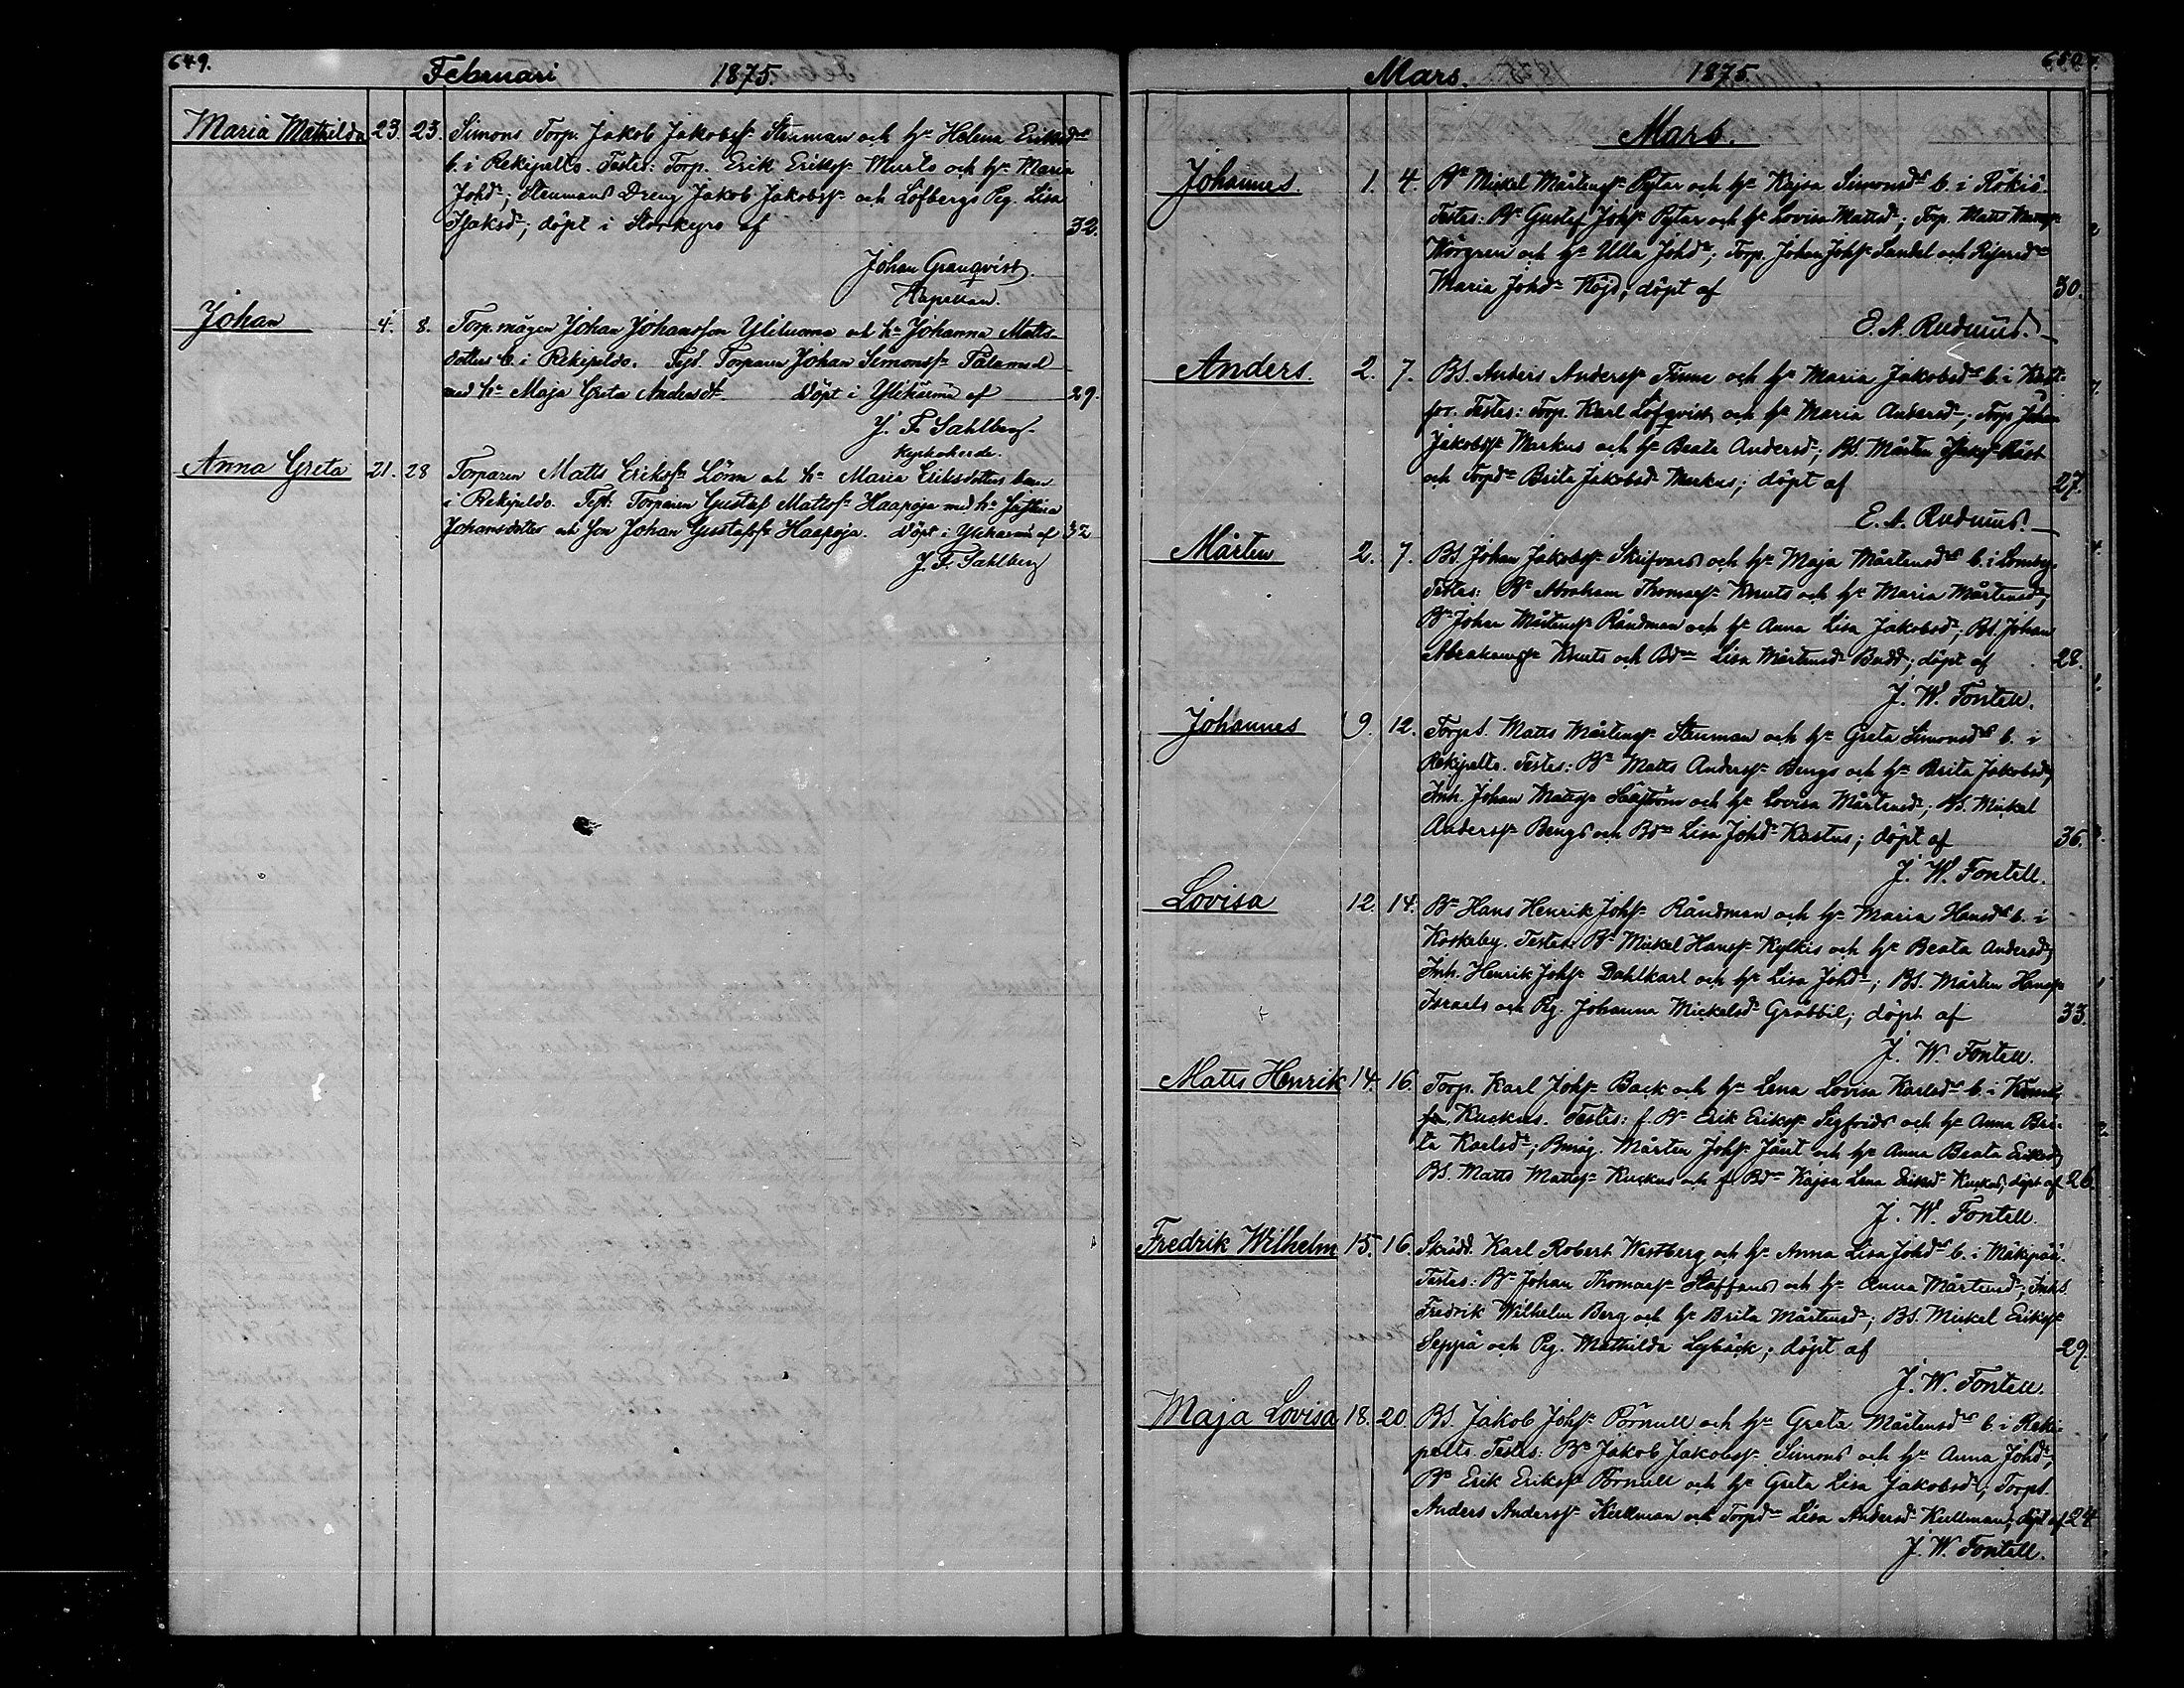 649.
Februari 1875.
Maria Mathilda 23. 23. Simons Torp. Jakob Jakobss: Stenman och h: Helena Eriksdr
b. i Rekipelto. Testes: Torp. Erik Erikss: Murto och h: Maria
Johd:; Stenmans Dreng Jakob Jakobss: och Löfbergs Pig. Lisa
Isaksd:; döpt i Storkyro af 32.
Johan Granqvist.
Kapellan.
Johan 4. 8. Torp.mågen Johan Johansson Ylituoma och h: Johanna Matts-
dotters b. i Rekipeldo. Test. Torparen Johan Simonss:
med h: Maja Greta Andersdr. Döpt i Ylihärmä af 29.
J. F. Sahlberg
Kyrkoherde.
Anna Greta 21. 28 Torparen Matts Erikss: Lönn och h: Maria Eriksdotters barn
i Rekipeldo. Test: Torparen Gustaf Mattss: Haapoja med h: Justina
Johansdotter och Son Johan Gustafss: Haapoja. Döpt i Ylihärmä af 32
J. F. Sahlberg
650.
Mars. 1875.
Mars.
Johannes 1. 4. Bn Mickel Mårtenss: Pytar och h: Kajsa Simonsdr b. i Rökiö.
Testes: Bn Gustaf Johss: Pytar och h: Lovisa Mattsd:; Torp. Matts
Norgren och h: Ulla Johd:; Torp. Johan Johss: Sandel och
Maria Johd: Höjd; döpt af 30.
E. A. Rudnäs.
Anders. 2. 7. BS. Anders Anderss: Finne och h: Maria Jakobsdr b. i
for. Testes: Torp. Karl Löfqvist och h: Maria Andersd:; Torp. Johan
Jakobss: Markus och h: Beata Andersd:; BS. Mårten
och Torpd: Brita Jakobsd: Markus; döpt af 27.
E. A. Rudnäs.
Mårten 2. 7. BS. Johan Jakobss: Skrifvars och h: Maja Mårtensdr b. i Lomby.
Testes: Bn Abraham Thomass: Knuts och h: Maria Mårtensd:;
Bn Johan Mårtenss: Råndman och h: Anna Lisa Jakobsd:; BS. Johan
Abrahamss: Knuts och Bdn Lisa Mårtensd: Budd; döpt af 28.
J. W. Fontell.
Johannes 9. 12. TorpS. Matts Mårtenss: Stenman och h: Greta Simonsdr b. i
Rekipelto. Testes: Bn Matts Anderss: Bengs och h: Brita Jakobsd:;
Inh. Johan Matss: och h: Lovisa Mårtensd:; BS. Mickel
Anderss: Bengs och Bdn Lisa Johd: Kastus; döpt af 36.
J. W. Fontell.
Lovisa 12. 14. Bn Hans Henrik Johss: Råndman och h: Maria Hansdr b. i
Koskeby. Testes: Bn Mickel Hanss: Kylkis och h: Beata Andersd:;
Inh. Henrik Johss: Dahlkarl och h: Lisa Johd:; BS. Mårten Hanss:
Israels och Pig. Johanna Mickelsd: Grabbil; döpt af 33.
J. W. Fontell.
Matts Henrik 14. 16. Torp. Karl Johss: Back och h: Lena Lovisa Karlsdr b. i
Kuckus. Testes: f. Bn Erik Erikss: Sigfrids och h: Anna Bri-
ta Karlsd:; Bmåg. Mårten Johss: Jånt och h: Anna Beata Eriksd:;
BS. Matts Mattss: Kuckus och f. Bdn Kajsa Lena Eriksd: Kuckus; döpt af 26.
J. W. Fontell.
Fredrik Wilhelm 15. 16. Skrädd. Karl Robert Westberg och h: Anna Lisa Johdr b. i Mäkipää.
Testes: Bn Johan Thomass: Staffans och h: Anna Mårtensd:; InhS.
Fredrik Wilhelm Berg och h: Brita Mårtensd:; BS. Mickel Erikss:
Seppä och Pig. Mathilda Lybäck; döpt af 29.
J. W. Fontell.
Maja Lovisa 18. 20 BS. Jakob Johss: Pörnull och h: Greta Mårtensdr b. i Reki-
pelto. Testes: Bn Jakob Jakobss: Simons och h: Anna Johd:;
Bn Erik Erikss: Pörnull och h: Greta Lisa Jakobsd:; TorpS.
Anders Anderss: Kullman och Torpdn Lisa Andersd: Kullman; döpt af 24
J. W. Fontell.